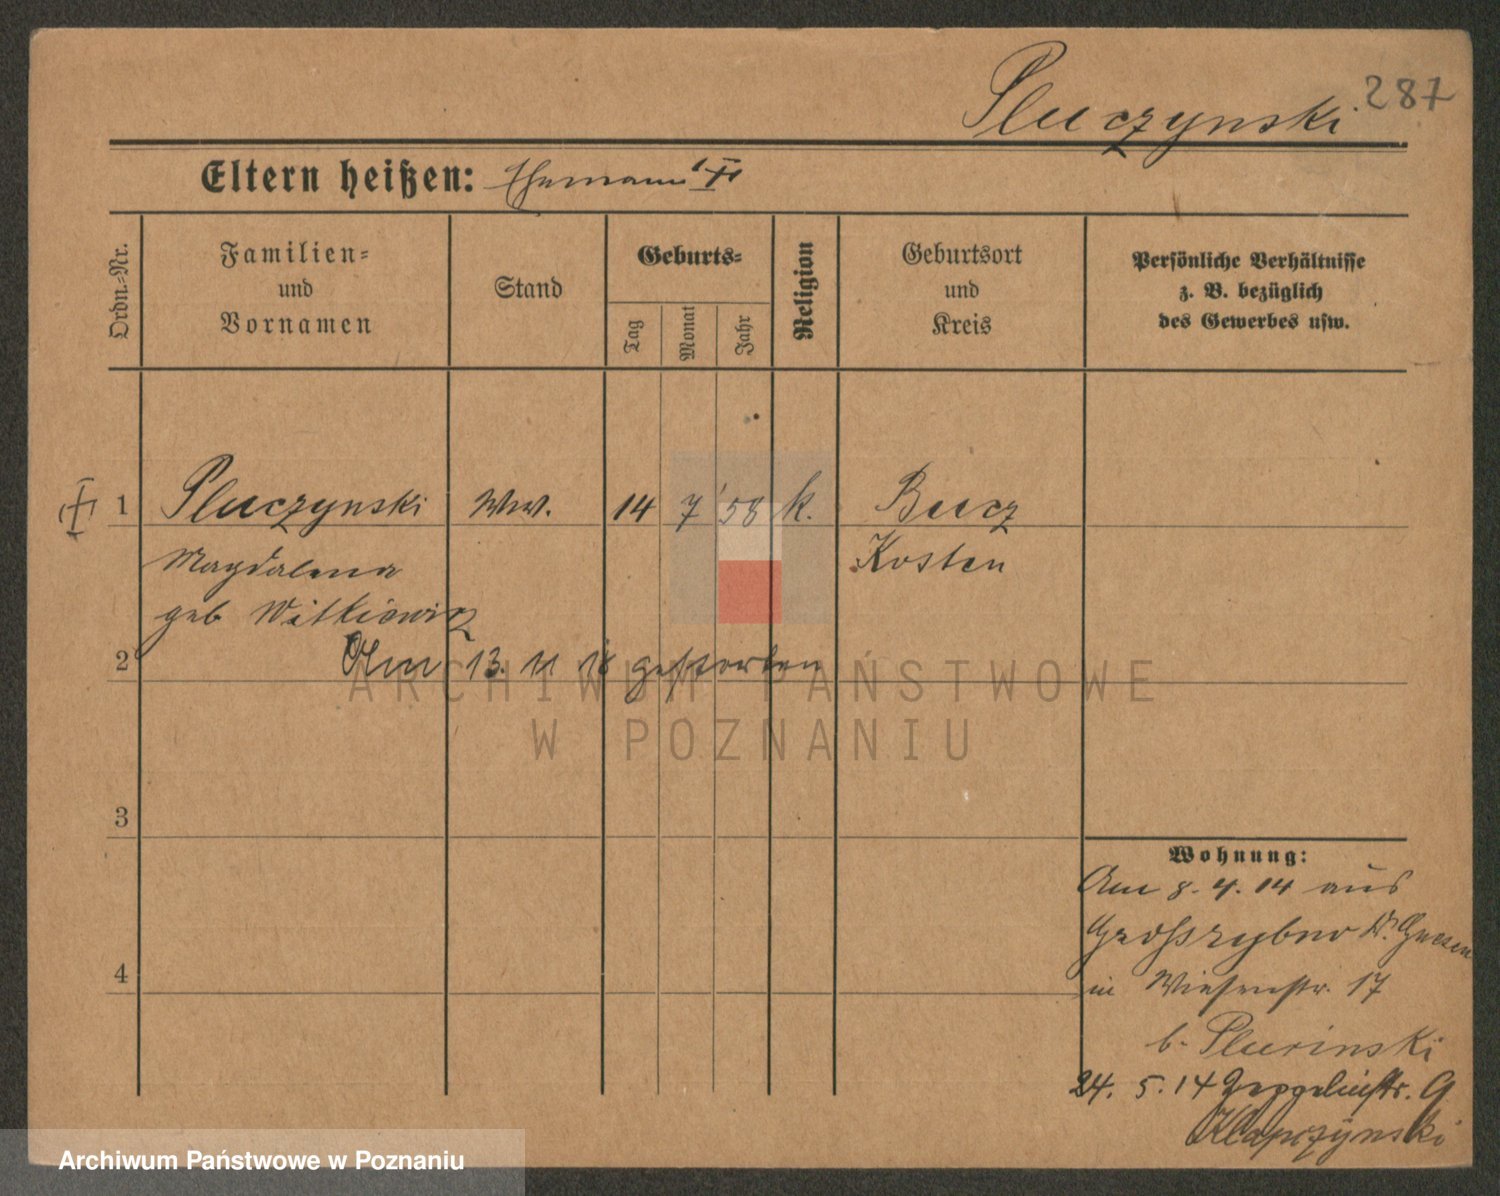 287
Pluczynski
Eltern heißen: Ehemann †
Ordn.-Nr.
Familien-
und
Vornamen
Stand
Geburts-
Tag
Monat
Jahr
Religion
Geburtsort
und
Kreis
Persönliche Verhältnisse
z. B. bezüglich
des Gewerbes usw.
1 Pluczynski Ww. 14 7 58 k. Bucz
Magdalena Kosten
geb Witkiewicz
2 Am 13. 11 18 gestorben
3
4
Wohnung:
Am 8. 4. 14 aus
Großrybno Kr. Gnesen
in Wiesenstr. 17
b. Plucinski
24. 5. 14 Zeppelinstr. 9
Klapczynski
ARCHIWUM PAŃSTWOWE
W POZNANIU
Archiwum Państwowe w Poznaniu